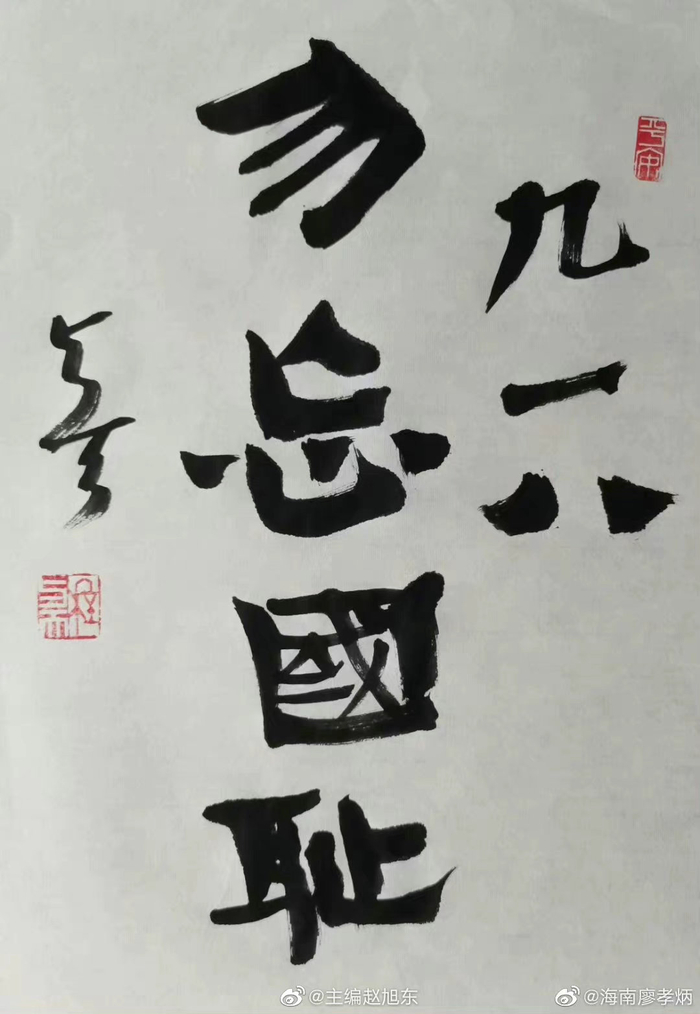 九一八
勿忘國耻
平安
@主编赵旭东
@海南廖孝炳